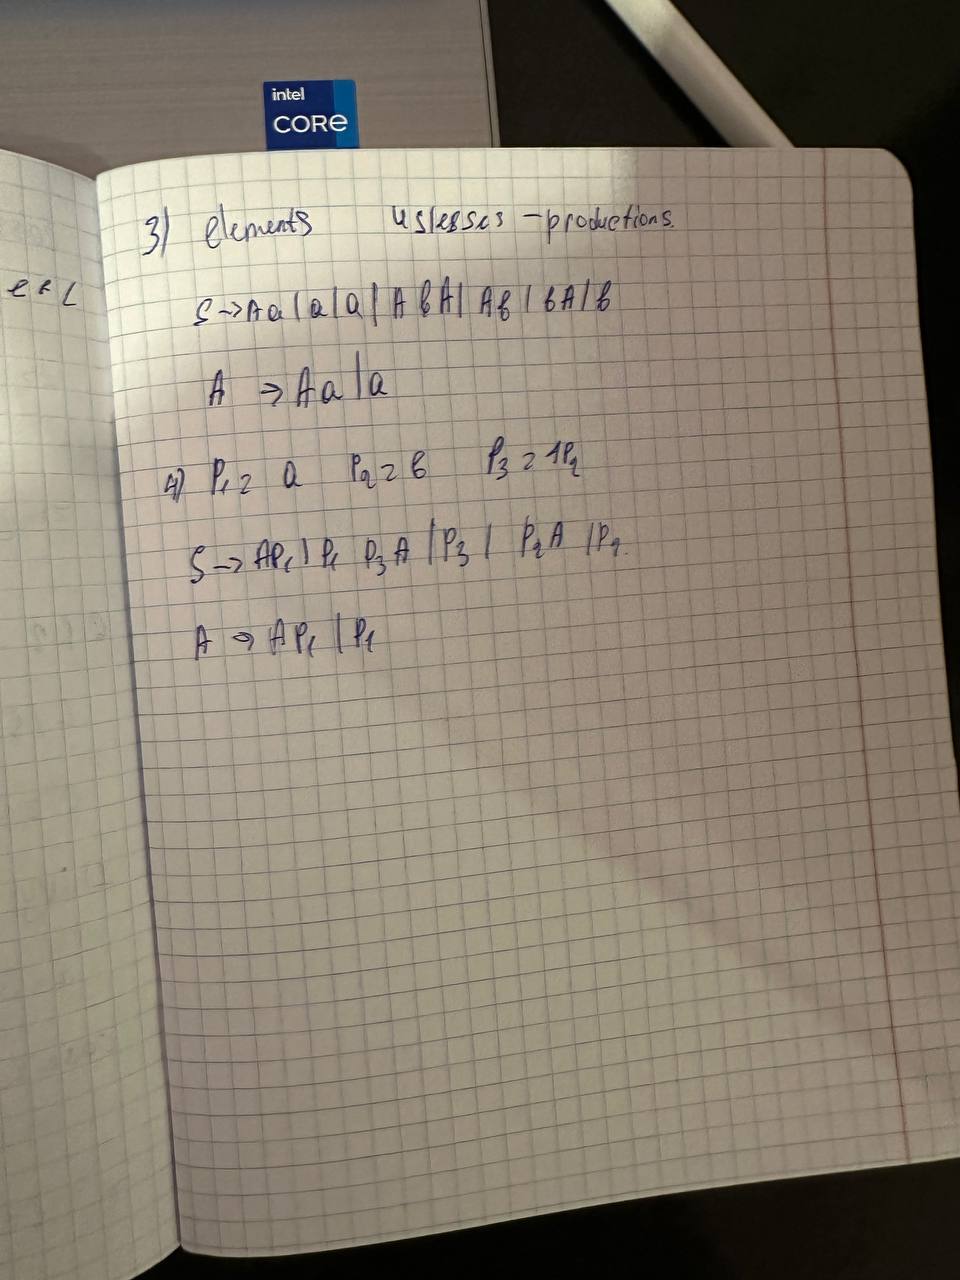 intel
CORE
3) elements uslesses - productions.
e в L
S → Aa | a | a | AвA | Aв | вA | в
A → Aa | a
4) P₁ = a P₂ = в P₃ = AP₂
S → AP₁ | P₁ P₃A | P₃ | P₂A | P₂.
A → AP₁ | P₁